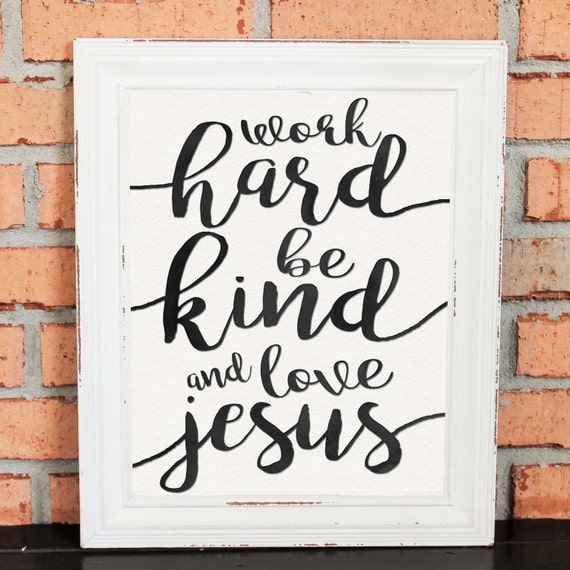 work
hard
be
kind
and love
jesus